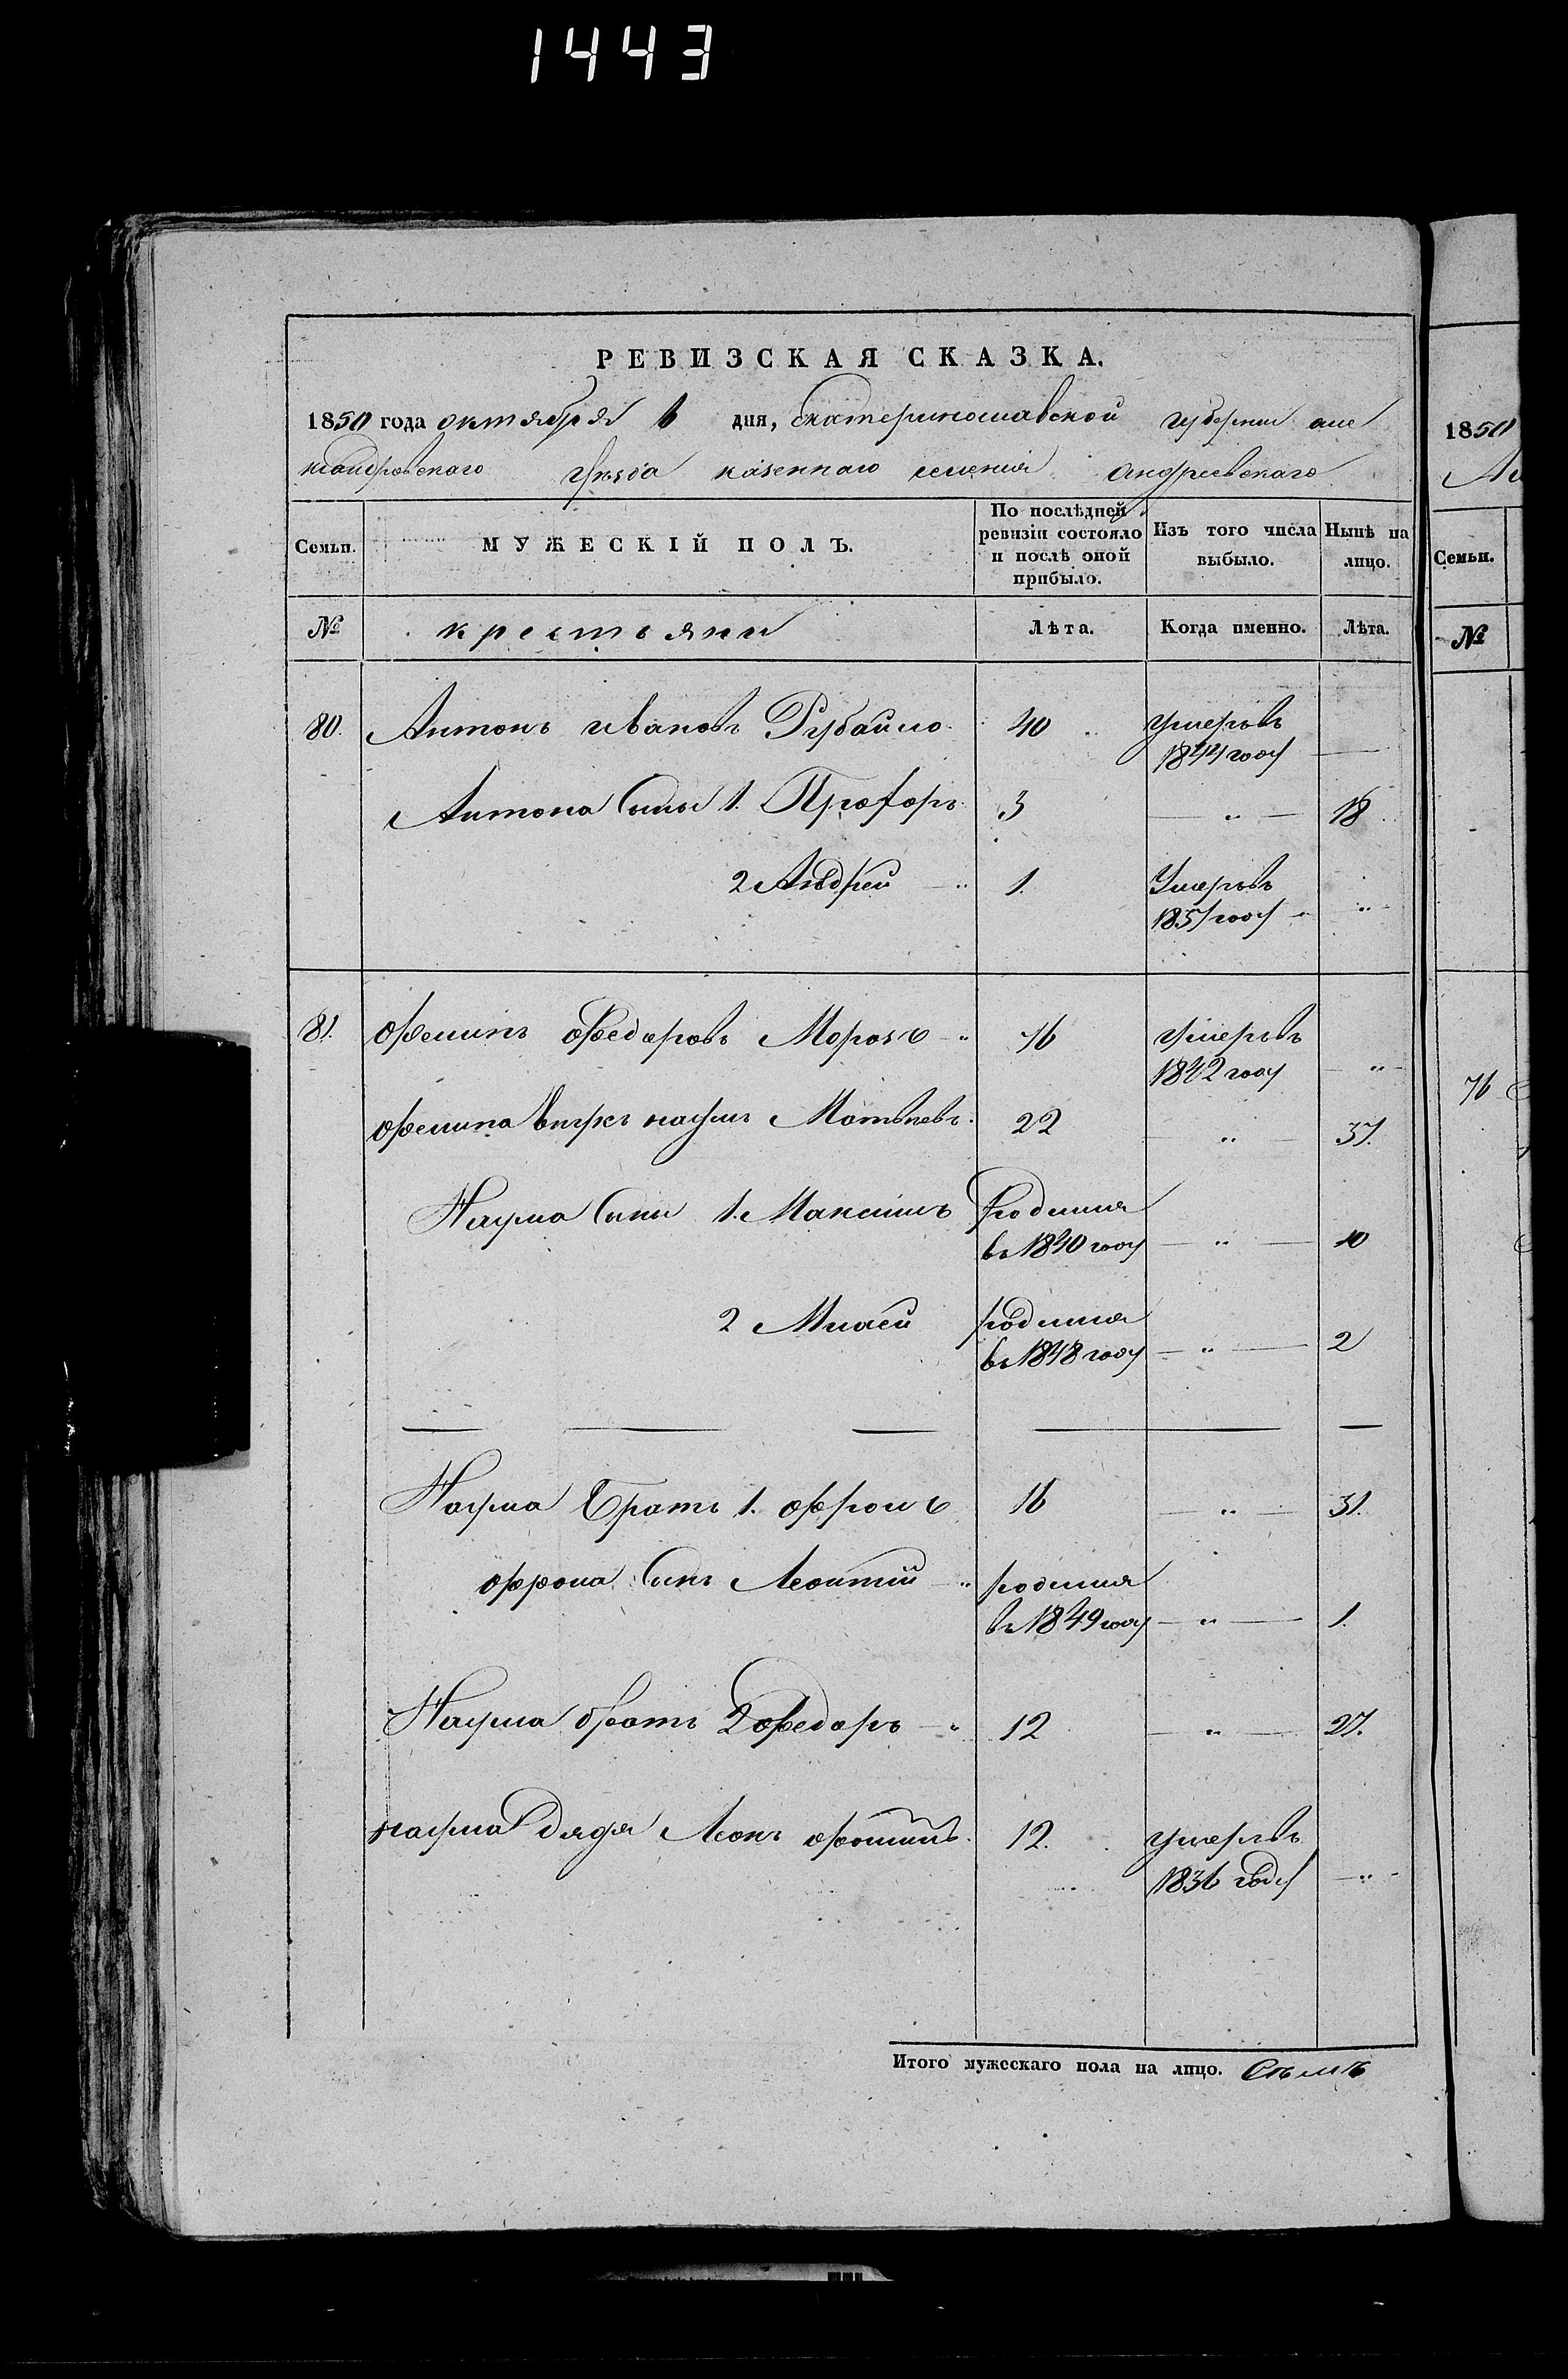 1443
РЕВИЗСКАЯ СКАЗКА.
1850 года октября 6 дня, Екатеринославской губернии алек
сандровскаго уѣзда казеннаго селенія Андреевскаго
1850
Семьи.
МУЖЕСКІЙ ПОЛЪ.
По послѣдней ревизіи состояло и послѣ оной прибыло.
Изъ того числа выбыло.
Нынѣ на лицо.
Семьи.
№ крестьяни Лѣта. Когда именно. Лѣта. №
80. Антонъ ивановъ Рубайло 40 умеръвъ
1844 году —
Антона Сыны 1. Прохоръ 3 — „ — 18
2 Андрей — „ 1. Умеръвъ
1837 году „ — „ —
81. Федоровъ Морозъ — „ 76 умеръвъ
1842 году — „ — 76
внукъ наумъ Матвѣевъ. 22 — „ — 37.
Наума Сыны 1. Максимъ родился
въ 1840 году — „ — 10
2 родился
въ 1848 году — „ — 2
Наума Братъ 1. 16 — „ — 31.
Сынъ Леонтій — „ родился
въ 1849 году — „ — 1.
Наума братъ 2 Федоръ — „ 12 — „ — 27.
наума дядя Леонъ 12. умеръвъ
1836 году — „ —
Итого мужескаго пола на лицо. Семь